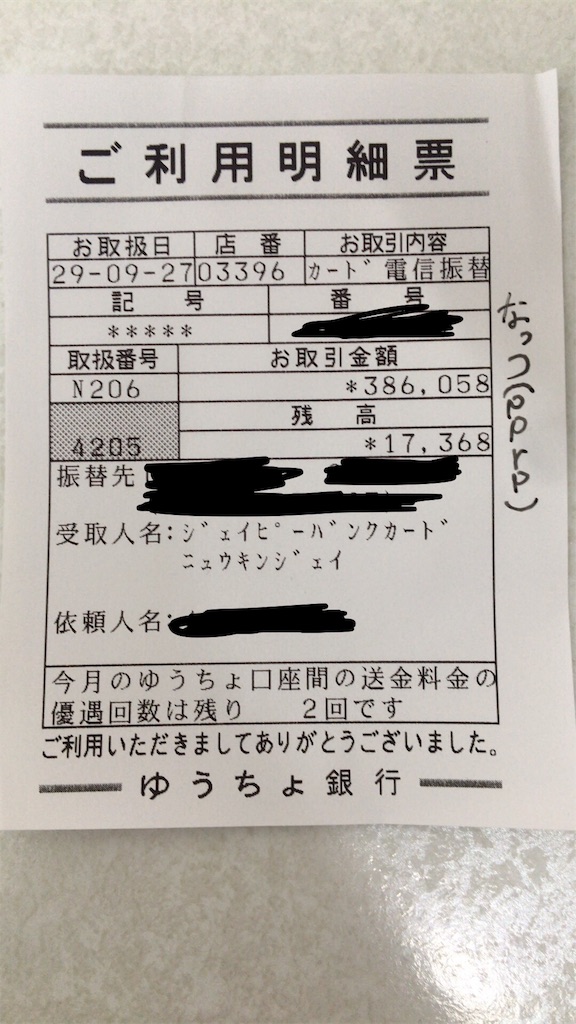 ご利用明細票
お取扱日 店番 お取引内容
29-09-27 03396 カード 電信振替
記号 番号
*****
取扱番号 お取引金額
N206 *386,058
残高
4205 *17,368
振替先
受取人名:ジェイピーバンクカード
ニュウキンジェイ
依頼人名:
今月のゆうちょ口座間の送金料金の
優遇回数は残り 2回です
ご利用いただきましてありがとうございました。
ゆうちょ銀行
なっつ(pprp)